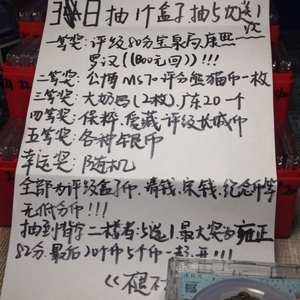 3米日 抽1个盒子抽5次送1次
一等奖:评级80分宝泉局康熙
罗汉((1800元回))!!!
二等奖:公博MS70评分熊猫币一枚
三等奖:大奶妈(2枚),广东20一个
四等奖:保粹、虔藏评级长城币
五等奖:各种银币
幸运奖:随机
全部为评级盒子币 清钱、宋钱、纪念币等
无低分币!!!
抽到背字二樯者:5送1最大奖为雍正
82分.最后20个币5个币一起开!!